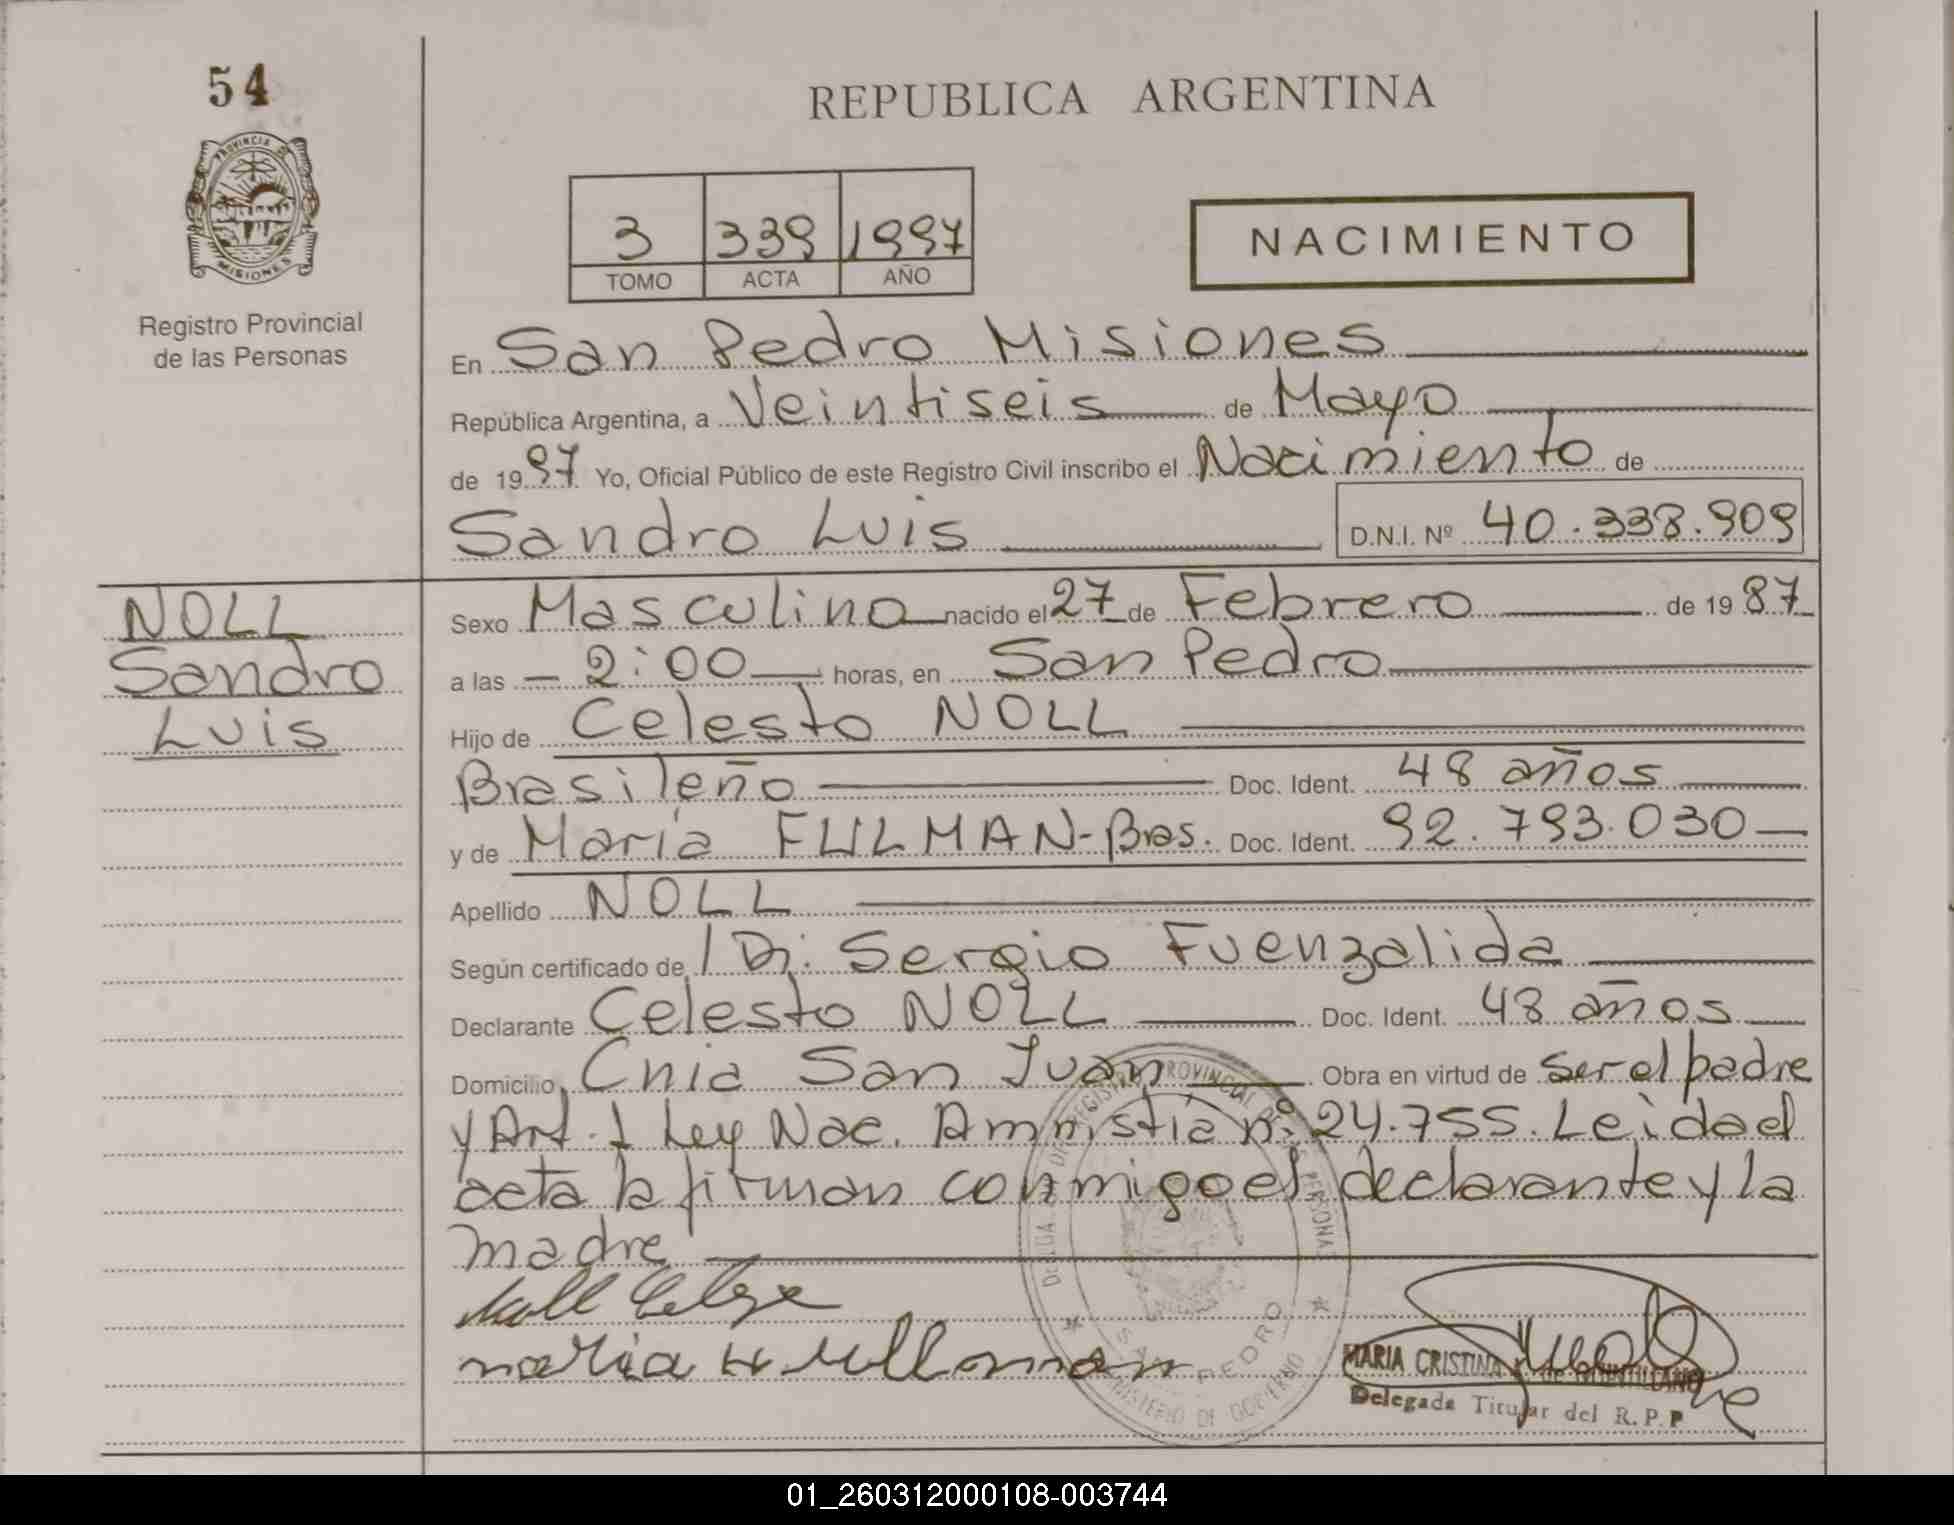 54
REPUBLICA ARGENTINA
PROVINCIA DE MISIONES
Registro Provincial
de las Personas
3 339 1997
TOMO ACTA AÑO
NACIMIENTO
En San Pedro Misiones
República Argentina, a Veintiseis de Mayo
de 1997 Yo, Oficial Público de este Registro Civil inscribo el Nacimiento de
Sandro Luis D.N.I. Nº 40.338.909
NOLL
Sandro
Luis
Sexo Masculino nacido el 27 de Febrero de 1987
a las 2:00 horas, en San Pedro
Hijo de Celesto NOLL
Brasileño Doc. Ident. 48 años
y de María FULMAN-Bras. Doc. Ident. 92.793.030
Apellido NOLL
Según certificado de Sergio Fuenzalida
Declarante Celesto NOLL Doc. Ident. 48 años
Domicilio Cnia San Juan Obra en virtud de ser el padre
y Art. 1 Ley Nac. Amnistía nº 24.755. Leida el
acta la firman conmigo el declarante y la
madre
Noll
maria
MARIA CRISTINA
Delegada Titular del R.P.P
REGISTRO PROVINCIAL DE LAS PERSONAS
SAN PEDRO
MINISTERIO DE GOBIERNO
01_260312000108-003744